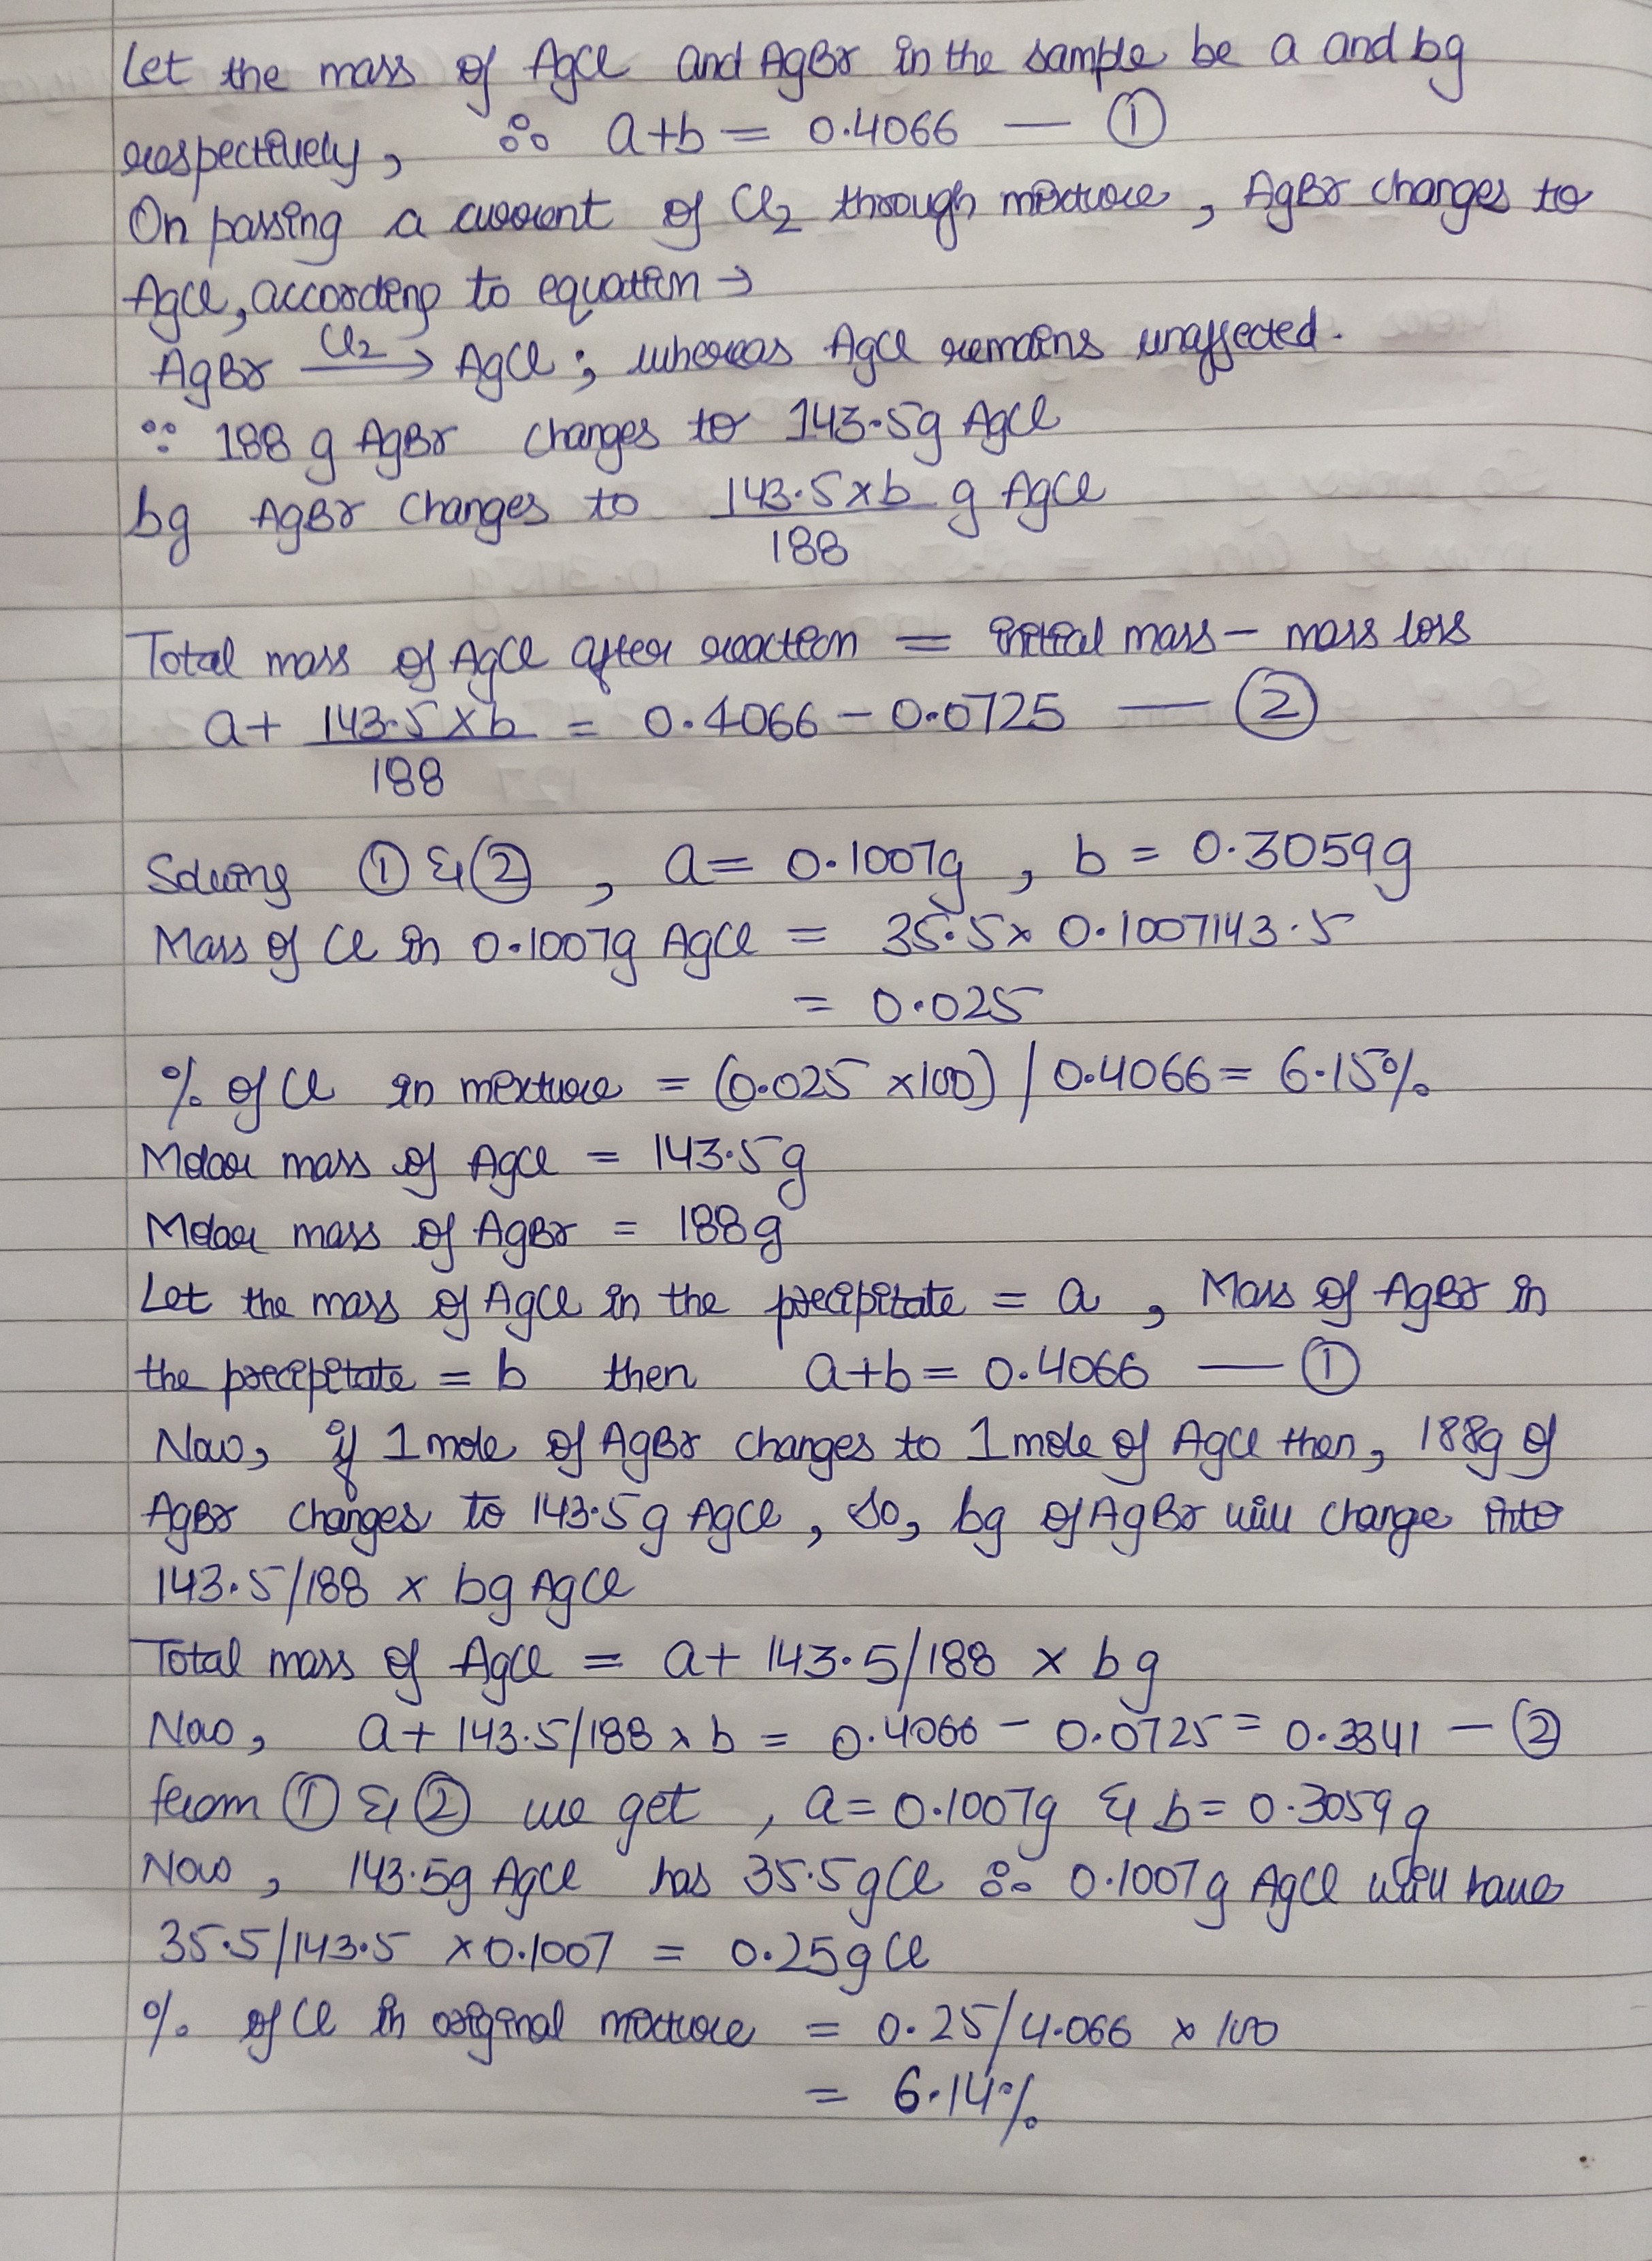 Let the mass of AgCl and AgBr in the sample be a and bg
respectively, ∴ a+b = 0.4066 — ①
On passing a current of Cl₂ through mixture, AgBr changes to
AgCl, according to equation →
AgBr —Cl₂→ AgCl ; whereas AgCl remains unaffected.
∵ 188 g AgBr changes to 143.5g AgCl
bg AgBr changes to 143.5×b/188 g AgCl
Total mass of AgCl after reaction = initial mass – mass loss
a+ 143.5×b/188 = 0.4066 – 0.0725 — ②
Solving ① & ② , a= 0.1007g , b = 0.3059g
Mass of Cl in 0.1007g AgCl = 35.5× 0.1007143.5
= 0.025
% of Cl in mixture = (0.025 ×100) / 0.4066 = 6.15%
Molar mass of AgCl = 143.5g
Molar mass of AgBr = 188g
Let the mass of AgCl in the precipitate = a , Mass of AgBr in
the precipitate = b then a+b = 0.4066 — ①
Now, if 1 mole of AgBr changes to 1 mole of AgCl then, 188g of
AgBr changes to 143.5g AgCl , so, bg of AgBr will change into
143.5/188 × bg AgCl
Total mass of AgCl = a+ 143.5/188 × bg
Now, a+ 143.5/188 × b = 0.4066 – 0.0725 = 0.3341 — ②
from ① & ② we get , a= 0.1007g & b= 0.3059g
Now , 143.5g AgCl has 35.5gCl ∴ 0.1007g AgCl will have
35.5/143.5 ×0.1007 = 0.25gCl
% of Cl in original mixture = 0.25/4.066 × 100
= 6.14%